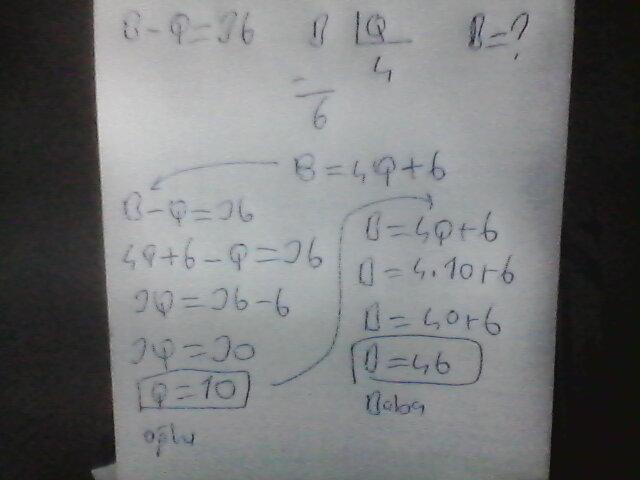 B-Q=36 B |Q B=?
4
-
6
B=4Q+6
B-Q=36
4Q+6-Q=36
3Q=36-6
3Q=30
Q=10
oğlu
B=4Q+6
B=4.10+6
B=40+6
B=46
Baba